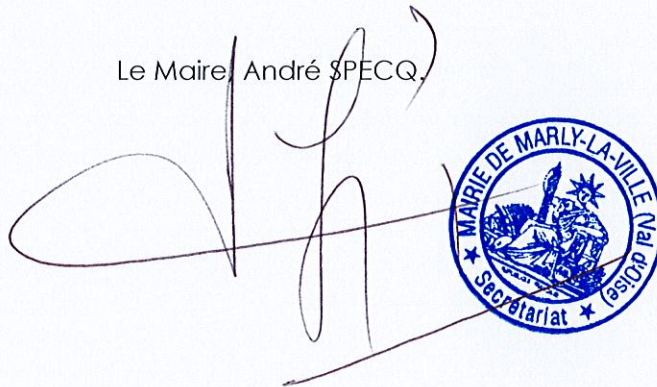 Le Maire, André SPECQ.
MAIRIE DE MARLY-LA-VILLE (Val d'Oise)
★ Secrétariat ★